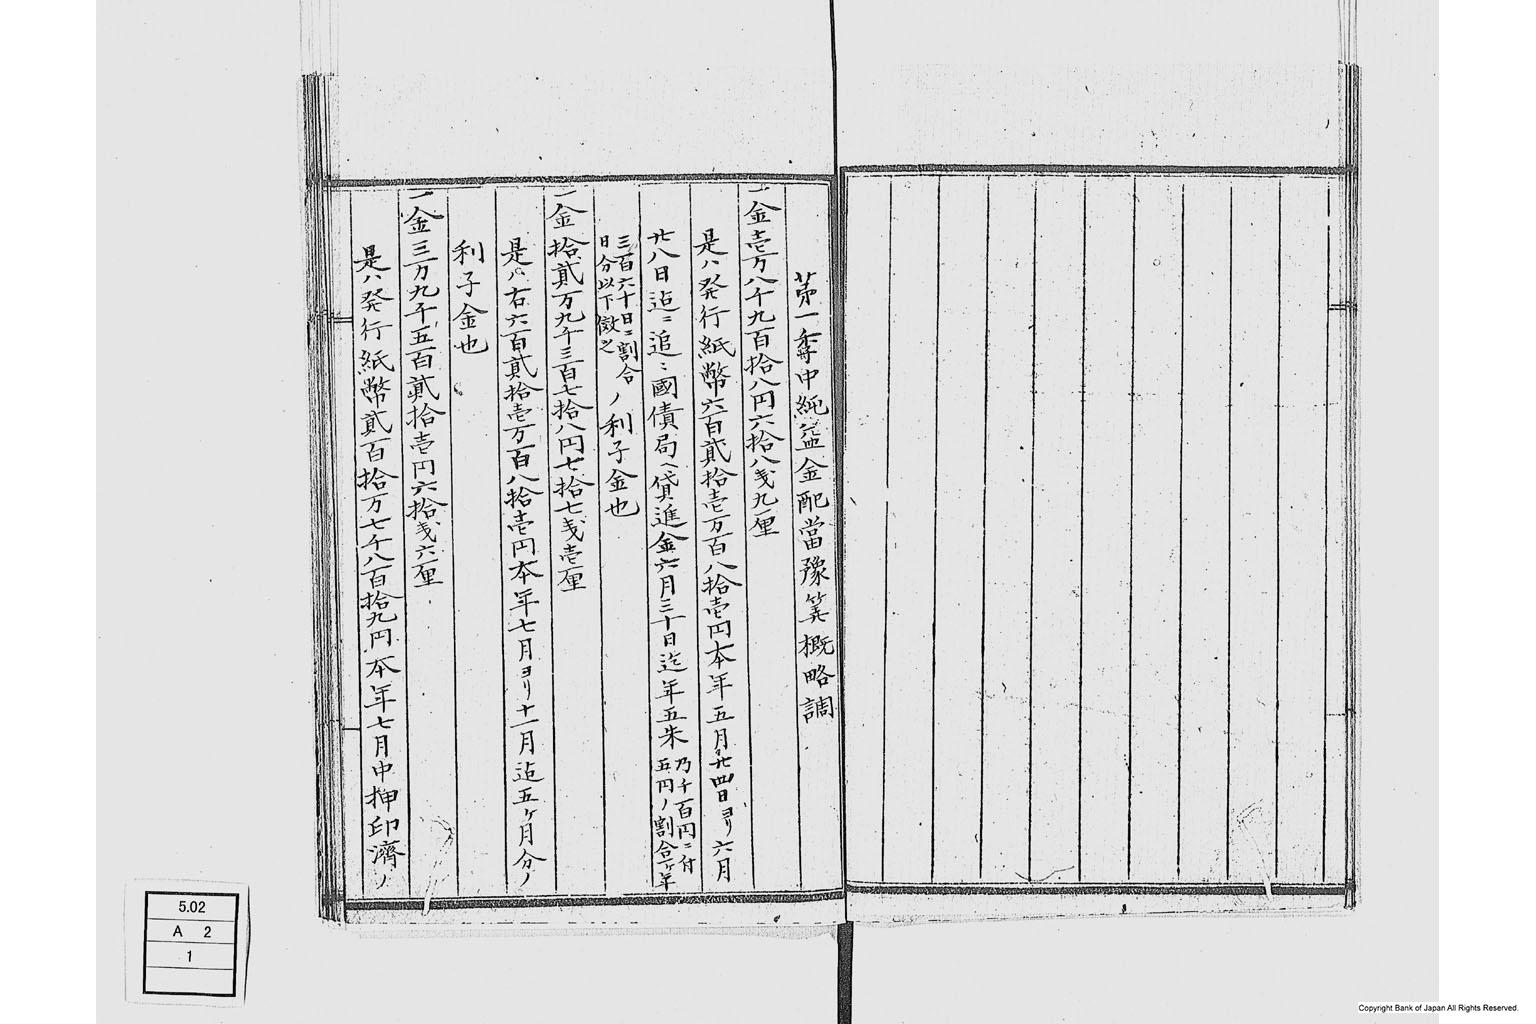 第一季中純益金配當豫算概略調
一金壱万八千九百拾八円六拾八戔九厘
是ハ発行紙幣六百貳拾壱万百八拾壱円本年五月廿四日ヨリ六月
廿八日迠ニ追〻國債局ヘ貸進金六月三十日迄年五朱乃千百円ニ付五円ノ割合一ケ年
三百六十日ニ割合日分以下倣之ノ利子金也
一金拾貳万九千三百七拾八円七拾七戔壱厘
是ハ右六百貳拾壱万百八拾壱円本年七月ヨリ十一月迠五ケ月分ノ
利子金也
一金三万九千五百貳拾壱円六拾戔六厘
是ハ発行紙幣貳百拾万七千八百拾九円本年七月中押印濟ノ
5.02
A 2
1
Copyright Bank of Japan All Rights Reserved.